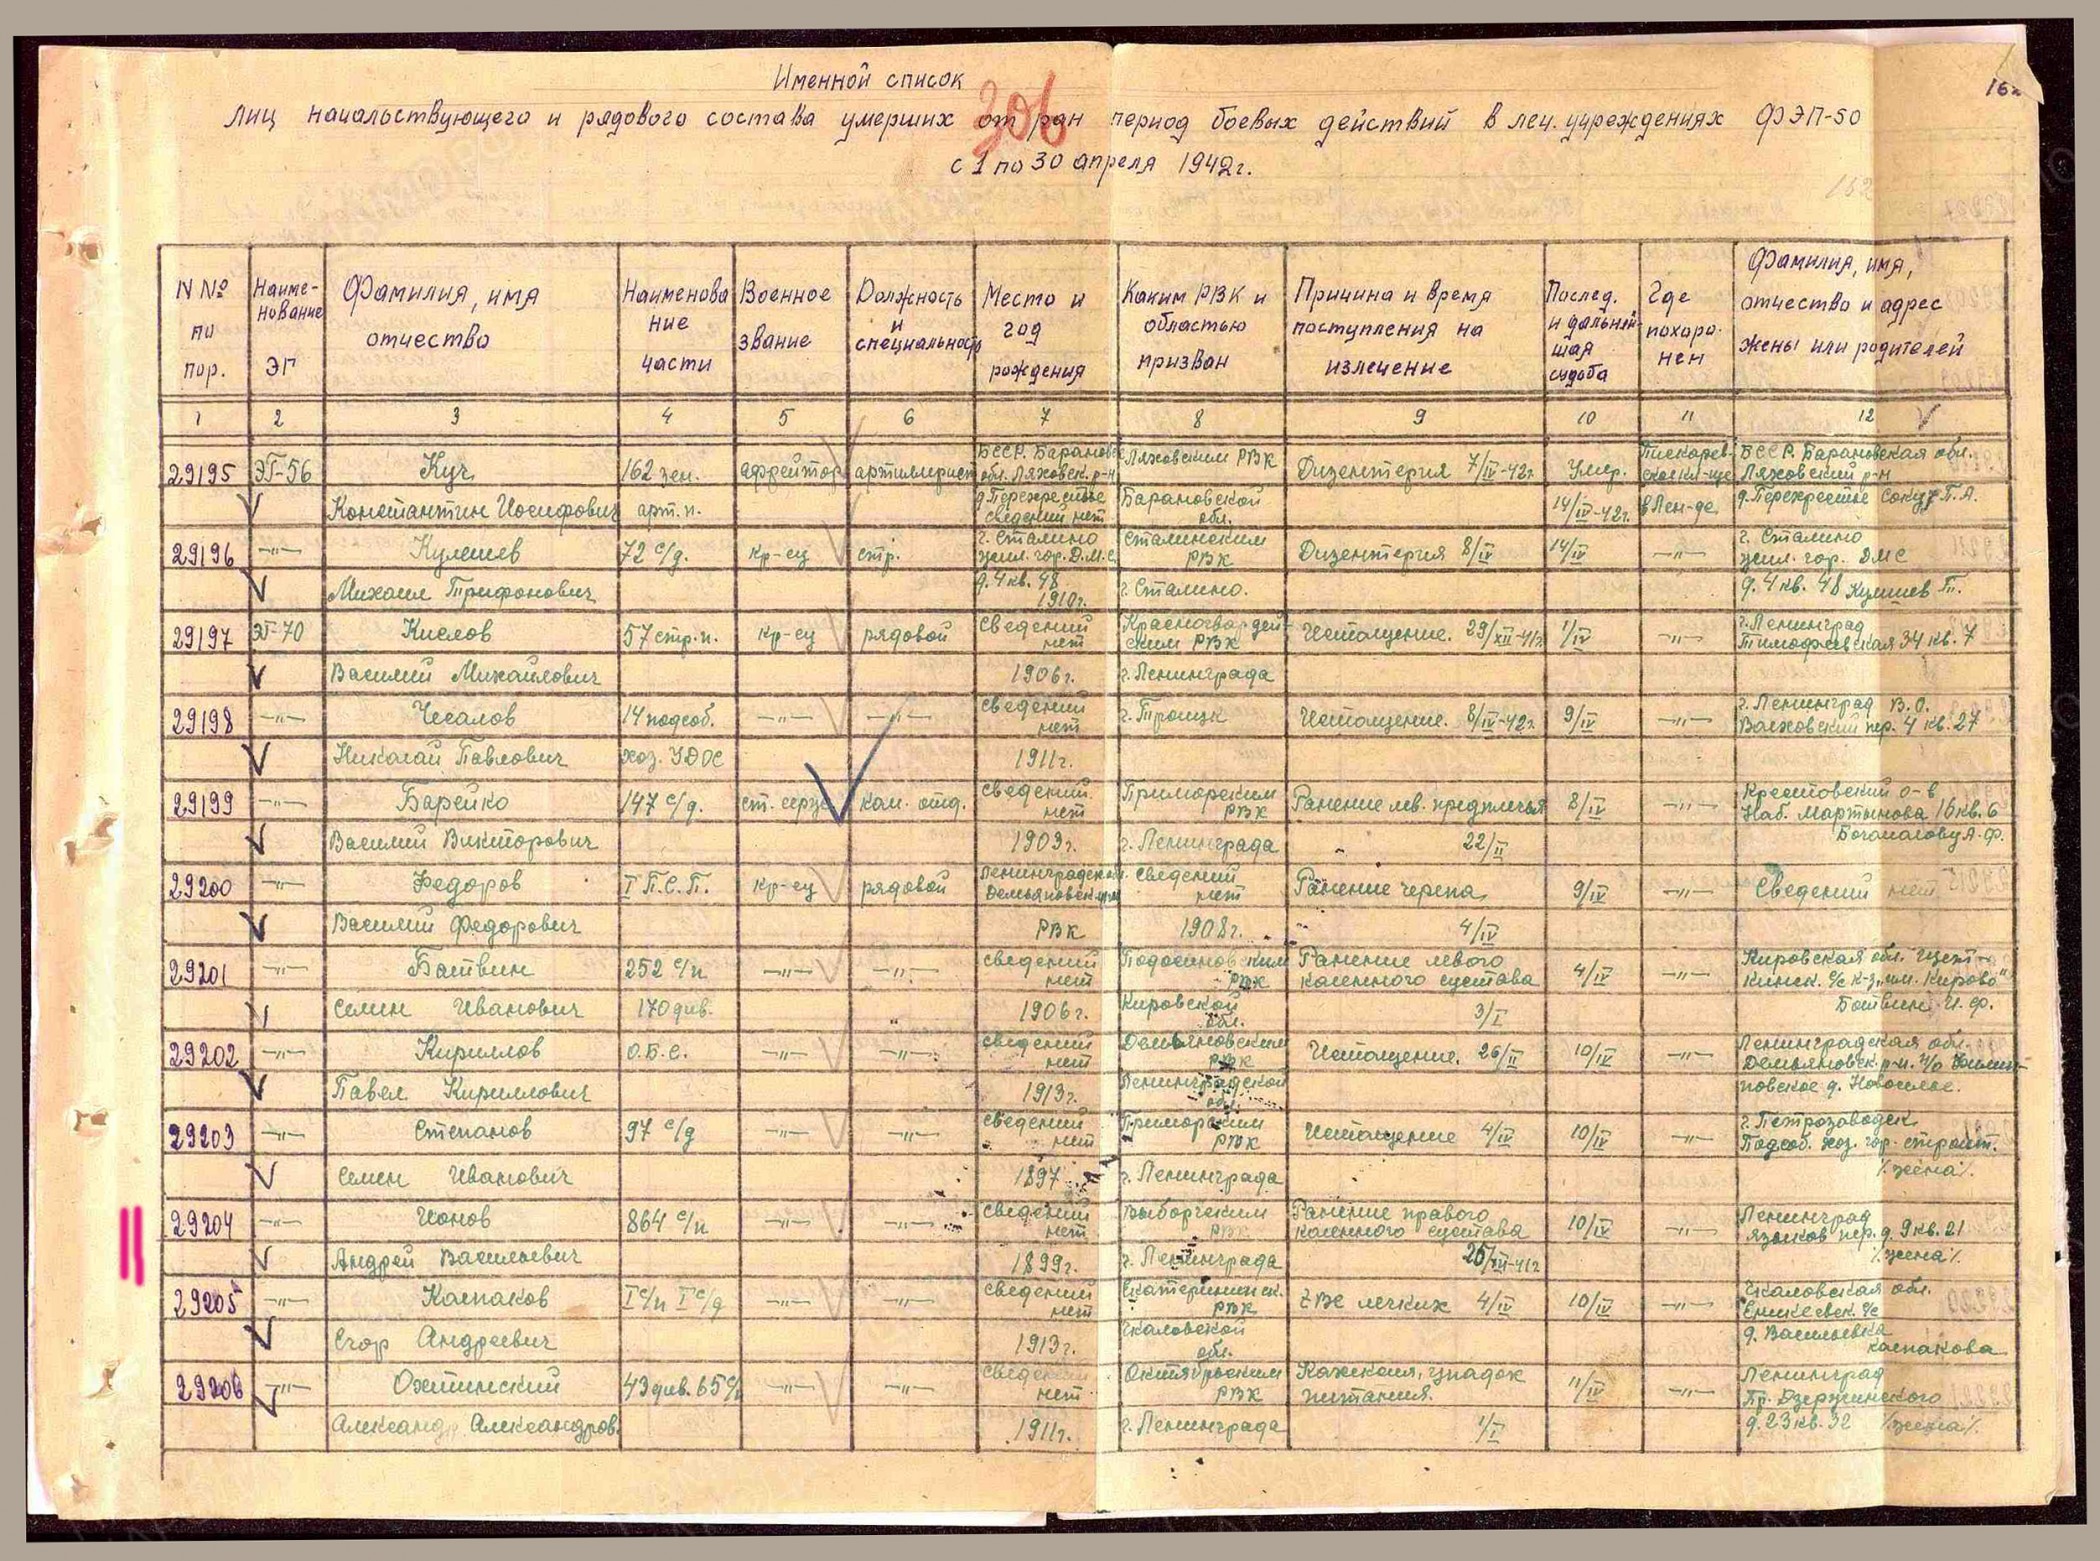 Именной список
лиц начальствующего и рядового состава умерших от ран период боевых действий в леч. учреждениях ФЭП-50
с 1 по 30 апреля 1942г.
306
162
N№ по пор.
Наиме-нование ЭГ
Фамилия, имя отчество
Наименова ние части
Военное звание
Должность и специальность
Место и год рождения
Каким РВК и областью призван
Причина и время поступления на излечение
Послед. и дальней-шая судьба
Где похоро-нен
Фамилия, имя, отчество и адрес жены или родителей
1 2 3 4 5 6 7 8 9 10 11 12
29195 ЭГ-56 Куч 162 зен. ефрейтор артиллерист БССР. Барановск обл. Ляховск. р-н Ляховским РВК Дизентерия 7/IV-42г. Умер. Пискарев-ское кл-ще БССР. Барановская обл. Ляховский р-н
Константин Иосифович арт.п. д.Перекрестье сведений нет Барановской обл. 14/IV-42г. в Лен-де д.Перекрестье П.А.
29196 —"— Кулешев 72 с/д. кр-ец стр. г. Сталино жил. гор. Д.М.С. Сталинским РВК Дизентерия 8/IV 14/IV —"— г. Сталино жил. гор. ДМС
Михаил Трифонович д.4 кв. 48 1910г. г. Сталино. д.4 кв. 48 Кулешев Т.
29197 ЭГ-70 Кислов 57 стр.п. кр-ец рядовой сведений нет Красногвардей-ским РВК Истощение. 29/XII-41г. 1/IV —"— г.Ленинград Тимофеевская 34 кв. 7
Василий Михайлович 1906г. г. Ленинграда
29198 —"— Чесалов 14 подсоб. —"— —"— сведений нет г. Троицк Истощение. 8/IV-42г. 9/IV —"— г. Ленинград В.О. Волховский пер. 4 кв. 27
Николай Павлович хоз. УДОС 1911г.
29199 —"— Барейко 147 с/д. ст. серж. ком. отд. сведений нет Приморским РВК Ранение лев. предплечья 8/IV —"— Крестовский о-в Наб. Мартынова 16 кв. 6
Василий Викторович 1903г. г. Ленинграда 22/II Богомолову А.Ф.
29200 —"— Федоров I П.С.П. кр-ец рядовой Ленинградской Демьяновск. сведений нет Ранение черепа 9/IV —"— Сведений нет
Василий Федорович РВК 1908г. 4/IV
29201 —"— Батвин 252 с/п —"— —"— сведений нет Подосиновским РВК Ранение левого коленного сустава 4/IV —"— Кировская обл. с/с к-з „им. Кирово"
Семен Иванович 170 див. 1906г. Кировской обл. 3/I Ботвин И. Ф.
29202 —"— Кириллов О.Б.С. —"— —"— сведений нет Демьяновским РВК Истощение. 26/II 10/IV —"— Ленинградская обл. Демьяновск. р-н.
Павел Кириллович 1913г. Ленинградской обл. повское д. Новоселье.
29203 —"— Степанов 97 с/д —"— —"— сведений нет Приморским РВК Истощение 4/IV 10/IV —"— г. Петрозаводск Подсоб. хоз. гор. строит.
Семен Иванович 1897 г. Ленинграда /жена/.
29204 —"— Ионов 864 с/п —"— —"— сведений нет Выборгским РВК Ранение правого коленного сустава 10/IV —"— Ленинград Языков пер. д. 9 кв. 21
Андрей Васильевич 1899г. г. Ленинграда 25/XII-41г /жена/
29205 —"— Колпаков I с/п I с/д —"— —"— сведений нет Екатерининск. РВК ТВС легких 4/IV 10/IV —"— Чкаловская обл. с/с
Егор Андреевич 1913г. Чкаловской обл. д. Васильевка Колпакова
29206 —"— Охтинский 43 див. 65 с/п —"— —"— сведений нет Октябрьским РВК Кахексия, упадок питания. 11/IV —"— Ленинград Пр. Дзержинского
Александр Александров. 1911г. г. Ленинграда 1/I д. 23 кв. 32 /жена/.